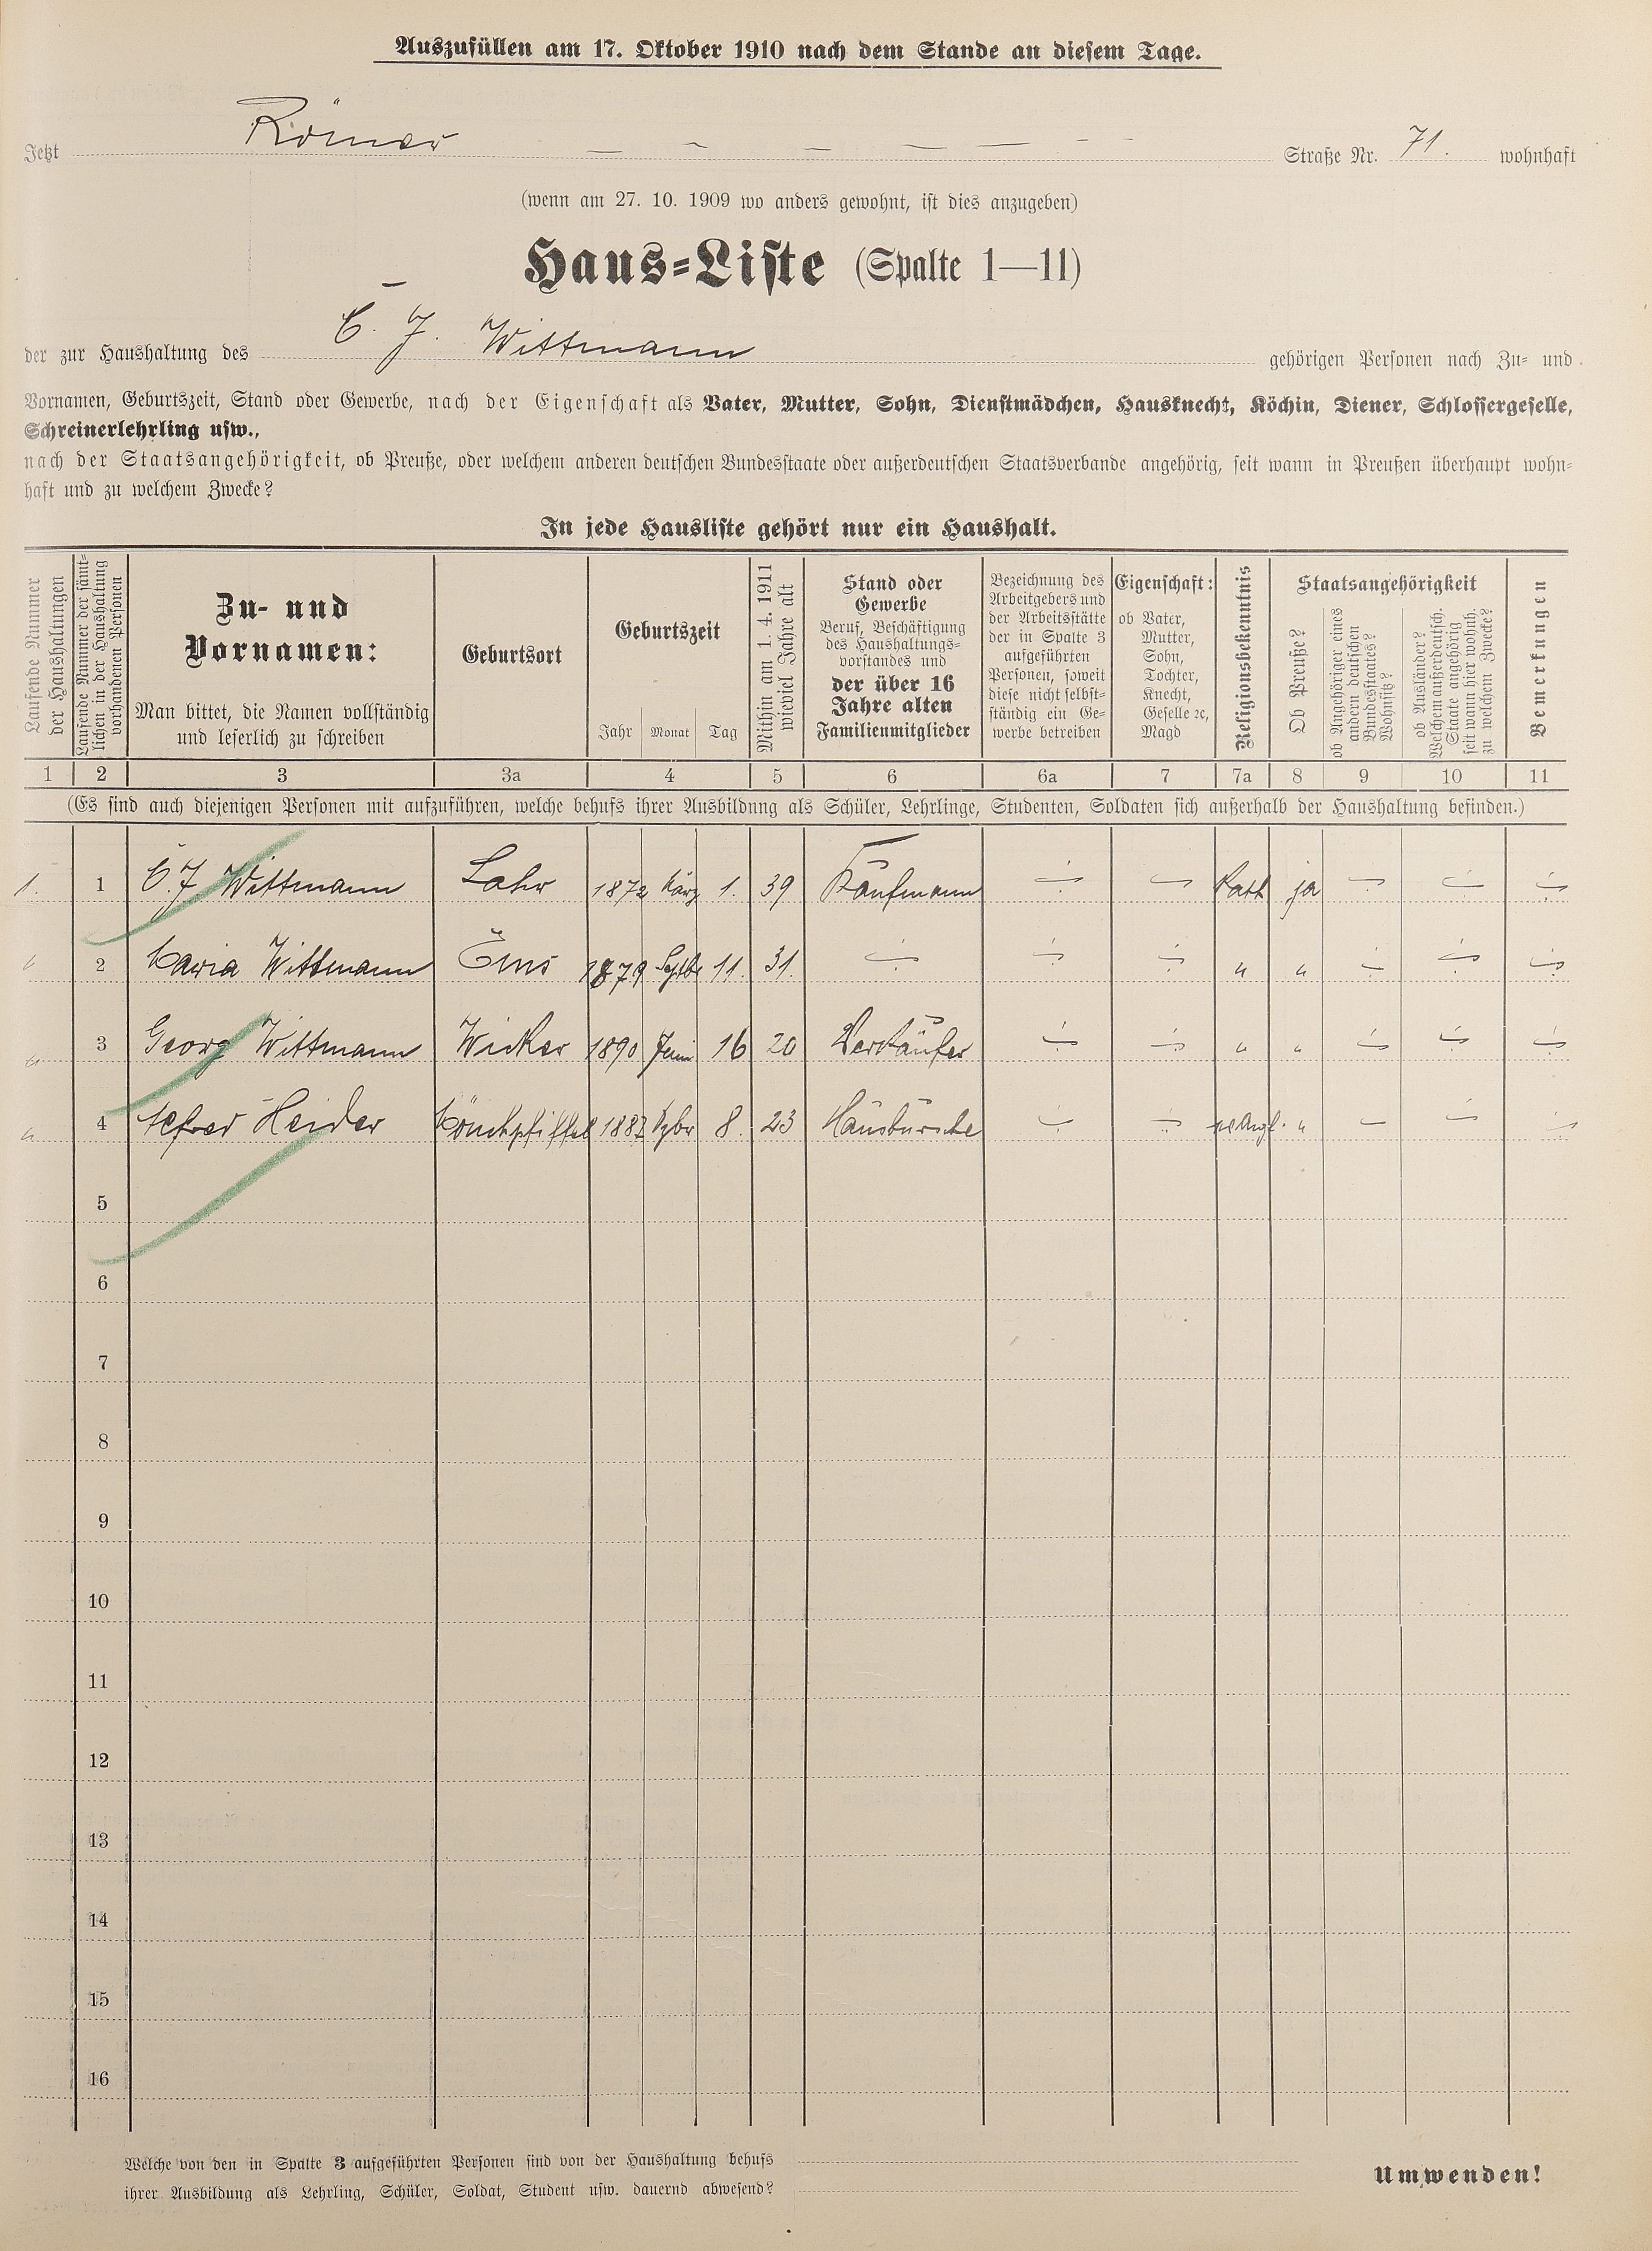 Auszufüllen am 17. Oktober 1910 nach dem Stande an diesem Tage.
Jetzt Römer — — — — — — — Straße Nr. 71. wohnhaft
(wenn am 27. 10. 1909 wo anders gewohnt, ist dies anzugeben)
Haus-Liste (Spalte 1—11)
der zur Haushaltung des C. J. Wittmann gehörigen Personen nach Zu- und
Vornamen, Geburtszeit, Stand oder Gewerbe, nach der Eigenschaft als Vater, Mutter, Sohn, Dienstmädchen, Hausknecht, Köchin, Diener, Schlossergeselle,
Schreinerlehrling usw.,
nach der Staatsangehörigkeit, ob Preuße, oder welchem anderen deutschen Bundesstaate oder außerdeutschen Staatsverbande angehörig, seit wann in Preußen überhaupt wohn-
haft und zu welchem Zwecke?
In jede Hausliste gehört nur ein Haushalt.
Laufende Nummer
der Haushaltungen
Laufende Nummer der sämt-
lichen in der Haushaltung
vorhandenen Personen
Zu- und
Vornamen:
Man bittet, die Namen vollständig
und leserlich zu schreiben
Geburtsort
Geburtszeit
Jahr Monat Tag
Mithin am 1. 4. 1911
wieviel Jahre alt
Stand oder
Gewerbe
Beruf, Beschäftigung
des Haushaltungs-
vorstandes und
der über 16
Jahre alten
Familienmitglieder
Bezeichnung des
Arbeitgebers und
der Arbeitsstätte
der in Spalte 3
aufgeführten
Personen, soweit
diese nicht selbst-
ständig ein Ge-
werbe betreiben
Eigenschaft:
ob Vater,
Mutter,
Sohn,
Tochter,
Knecht,
Geselle ꝛc,
Magd
Religionsbekenntnis
Staatsangehörigkeit
Ob Preuße?
ob Angehöriger eines
andern deutschen
Bundesstaates?
Wohnsitz?
ob Ausländer?
Welchem außerdeutsch.
Staate angehörig
seit wann hier wohnh.
zu welchem Zwecke?
Bemerkungen
1 2 3 3a 4 5 6 6a 7 7a 8 9 10 11
(Es sind auch diejenigen Personen mit aufzuführen, welche behufs ihrer Ausbildung als Schüler, Lehrlinge, Studenten, Soldaten sich außerhalb der Haushaltung befinden.)
1. 1 C. J. Wittmann Lahr 1872 März 1. 39 Kaufmann — — Kath ja — — —
" 2 Maria Wittmann Ems 1879 Septbr 11. 31. — — — " " — — —
" 3 Georg Wittmann Wicker 1890 Juni 16 20 Verkäufer — — " " — — —
" 4 Heider Mönchpfiffel 1887 8. 23 Hausbursche — — " — — —
5
6
7
8
9
10
11
12
13
14
15
16
Welche von den in Spalte 3 aufgeführten Personen sind von der Haushaltung behufs
ihrer Ausbildung als Lehrling, Schüler, Soldat, Student usw. dauernd abwesend?
Umwenden!